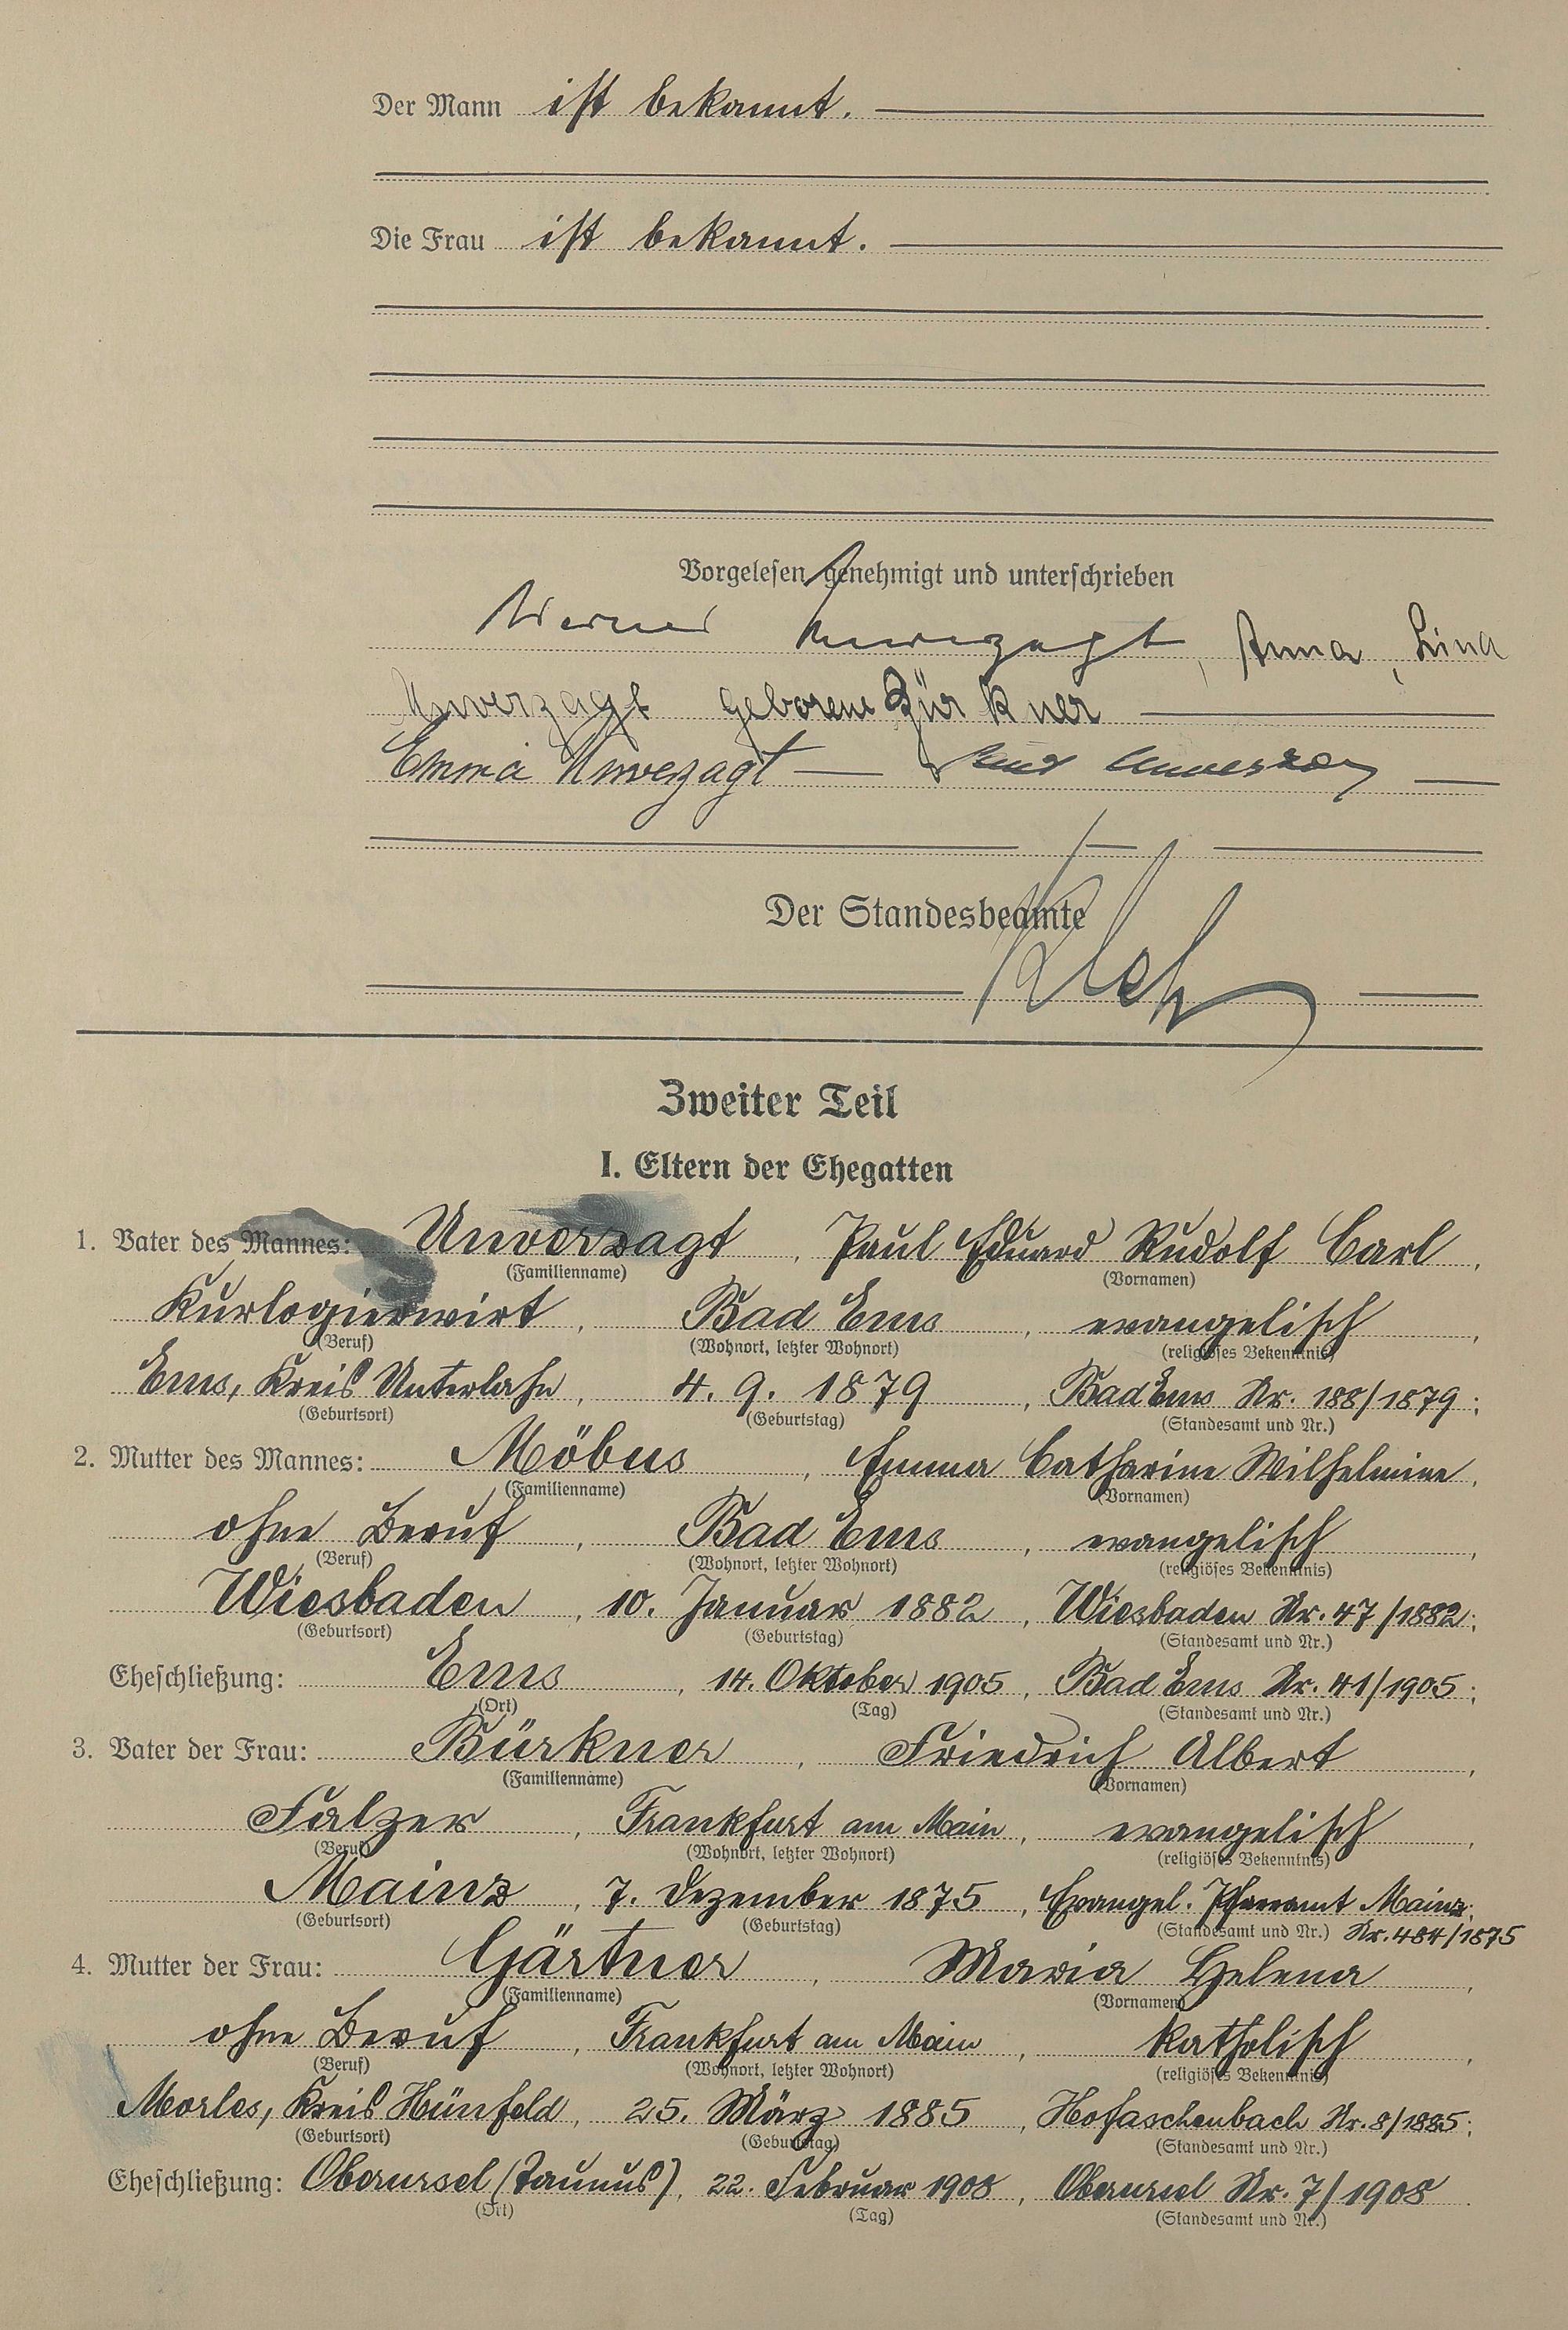 Der Mann ist bekannt.
Die Frau ist bekannt.
Vorgelesen, genehmigt und unterschrieben
Werner Unverzagt, Anna, Lina
Unverzagt geborene Bürkner
Emma Unverzagt
Der Standesbeamte
Zweiter Teil
I. Eltern der Ehegatten
1. Vater des Mannes: Unverzagt, Paul Eduard Rudolf Carl,
(Familienname) (Vornamen)
Kurlogierwirt, Bad Ems, evangelisch,
(Beruf) (Wohnort, letzter Wohnort) (religiöses Bekenntnis)
Ems, Kreis Unterlahn, 4. 9. 1879, Bad Ems Nr. 188/1879;
(Geburtsort) (Geburtstag) (Standesamt und Nr.)
2. Mutter des Mannes: Möbus, Emma Catharine Wilhelmine,
(Familienname) (Vornamen)
ohne Beruf, Bad Ems, evangelisch,
(Beruf) (Wohnort, letzter Wohnort) (religiöses Bekenntnis)
Wiesbaden, 10. Januar 1882, Wiesbaden Nr. 47/1882;
(Geburtsort) (Geburtstag) (Standesamt und Nr.)
Eheschließung: Ems, 14. Oktober 1905, Bad Ems Nr. 41/1905;
(Ort) (Tag) (Standesamt und Nr.)
3. Vater der Frau: Bürkner, Friedrich Albert,
(Familienname) (Vornamen)
Falzer, Frankfurt am Main, evangelisch,
(Beruf) (Wohnort, letzter Wohnort) (religiöses Bekenntnis)
Mainz, 7. Dezember 1875, Evangel. Pfarramt Mainz;
(Geburtsort) (Geburtstag) (Standesamt und Nr.) Nr. 484/1875
4. Mutter der Frau: Gärtner, Maria Helena,
(Familienname) (Vornamen)
ohne Beruf, Frankfurt am Main, katholisch,
(Beruf) (Wohnort, letzter Wohnort) (religiöses Bekenntnis)
Morles, Kreis Hünfeld, 25. März 1885, Hofaschenbach Nr. 8/1885;
(Geburtsort) (Geburtstag) (Standesamt und Nr.)
Eheschließung: Oberursel (Taunus), 22. Februar 1908, Oberursel Nr. 7/1908
(Ort) (Tag) (Standesamt und Nr.)